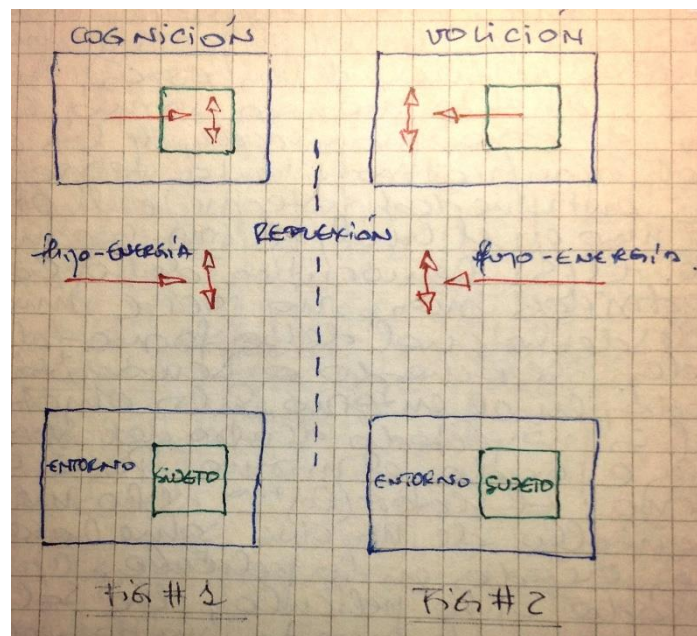 COGNICIÓN
VOLICIÓN
REFLEXIÓN
flujo-ENERGÍA
flujo-ENERGÍA
ENTORNO
SUJETO
ENTORNO
SUJETO
FIG # 1
FIG # 2